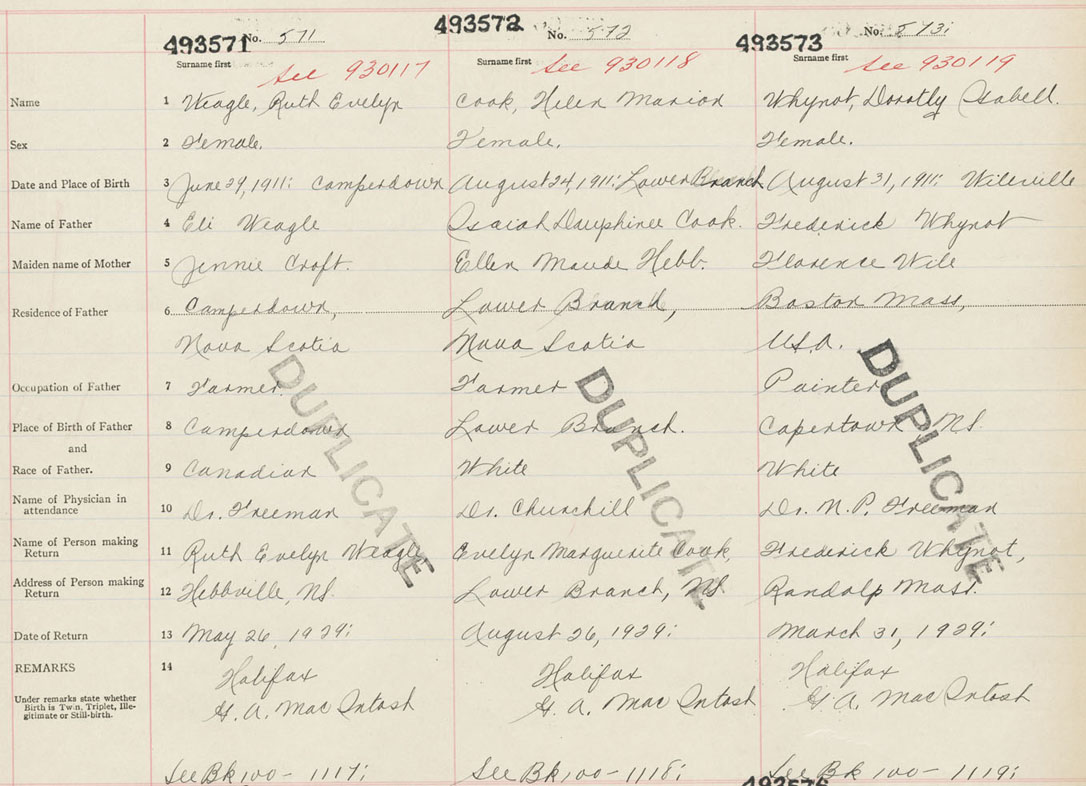 493571 No. 571 493572 No. 572 493573 No. 573
Surname first See 930117 Surname first See 930118 Surname first See 930119
Name 1 Weagle, Ruth Evelyn Cook, Helen Marion Whynot, Dorothy Isabell.
Sex 2 Female. Female. Female.
Date and Place of Birth 3 June 29, 1911; Camperdown August 24, 1911; Lower Branch August 31, 1911; Wileville
Name of Father 4 Eli Weagle Isaiah Dauphinee Cook. Frederick Whynot
Maiden name of Mother 5 Jennie Croft. Ellen Maude Hebb. Florence Wile
Residence of Father 6 Camperdown, Lower Branch, Boston Mass,
Nova Scotia Nova Scotia U.S.A.
Occupation of Father 7 Farmer. Farmer Painter
Place of Birth of Father 8 Camperdown Lower Branch. Capertown NS.
and
Race of Father. 9 Canadian White White
Name of Physician in attendance 10 Dr. Freeman Dr. Churchill Dr. N. P. Freeman
Name of Person making Return 11 Ruth Evelyn Weagle Evelyn Marguerite Cook, Frederick Whynot,
Address of Person making Return 12 Hebbville, NS. Lower Branch, NS. Randolp Mass.
Date of Return 13 May 26, 1939; August 26, 1939; March 31, 1939;
REMARKS 14 Halifax Halifax Halifax
Under remarks state whether Birth is Twin, Triplet, Ille-
gitimate or Still-birth.
G. A. MacIntosh G. A. MacIntosh G. A. MacIntosh
See Bk 100 - 1117; See Bk 100 - 1118; See Bk 100 - 1119;
DUPLICATE DUPLICATE DUPLICATE